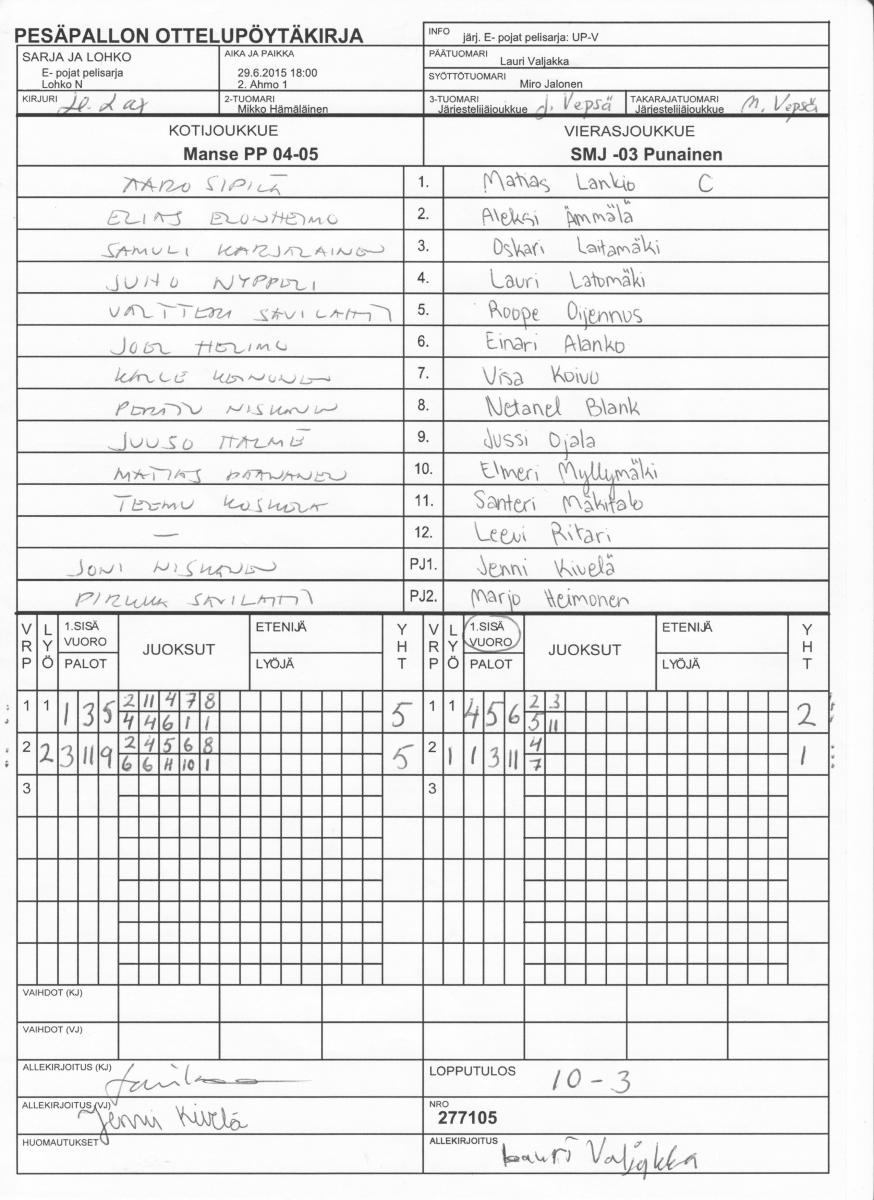 PESÄPALLON OTTELUPÖYTÄKIRJA
INFO järj. E- pojat pelisarja: UP-V
SARJA JA LOHKO
E- pojat pelisarja
Lohko N
AIKA JA PAIKKA
29.6.2015 18:00
2. Ahmo 1
PÄÄTUOMARI Lauri Valjakka
SYÖTTÖTUOMARI Miro Jalonen
KIRJURI
2-TUOMARI
Mikko Hämäläinen
3-TUOMARI
Järjestelijäjoukkue J. Vepsä
TAKARAJATUOMARI
Järjestelijäjoukkue M. Vepsä
KOTIJOUKKUE
Manse PP 04-05
VIERASJOUKKUE
SMJ -03 Punainen
AARO SIPILÄ 1. Matias Lankio C
ELIAS ELONHEIMO 2. Aleksi Ämmälä
SAMULI KARJALAINEN 3. Oskari Laitamäki
JUHO NYPPELI 4. Lauri Latomäki
VALTTERI SAVILAHTI 5. Roope Oijennus
JOEL HELIMO 6. Einari Alanko
KALLE KEINONEN 7. Visa Koivu
NISKANEN 8. Netanel Blank
JUUSO HALME 9. Jussi Ojala
MATIAS PAANANEN 10. Elmeri Myllymäki
TEEMU KOSKELA 11. Santeri Mäkitalo
— 12. Leevi Ritari
JONI NISKANEN PJ1. Jenni Kivelä
PIRKKA SAVILAHTI PJ2. Marjo Heimonen
VRP LYÖ 1.SISÄ VUORO PALOT JUOKSUT ETENIJÄ LYÖJÄ YHT VRP LYÖ 1.SISÄ VUORO PALOT JUOKSUT ETENIJÄ LYÖJÄ YHT
1 1 1 3 5 2 11 4 7 8 5 1 1 4 5 6 2 3 2
4 4 6 1 1 5 11
2 2 3 11 9 2 4 5 6 8 5 2 1 1 3 11 4 1
6 6 11 10 1 7
3 3
VAIHDOT (KJ)
VAIHDOT (VJ)
ALLEKIRJOITUS (KJ)
LOPPUTULOS 10 - 3
ALLEKIRJOITUS (VJ) Jenni Kivelä
NRO
277105
HUOMAUTUKSET
ALLEKIRJOITUS Lauri Valjakka